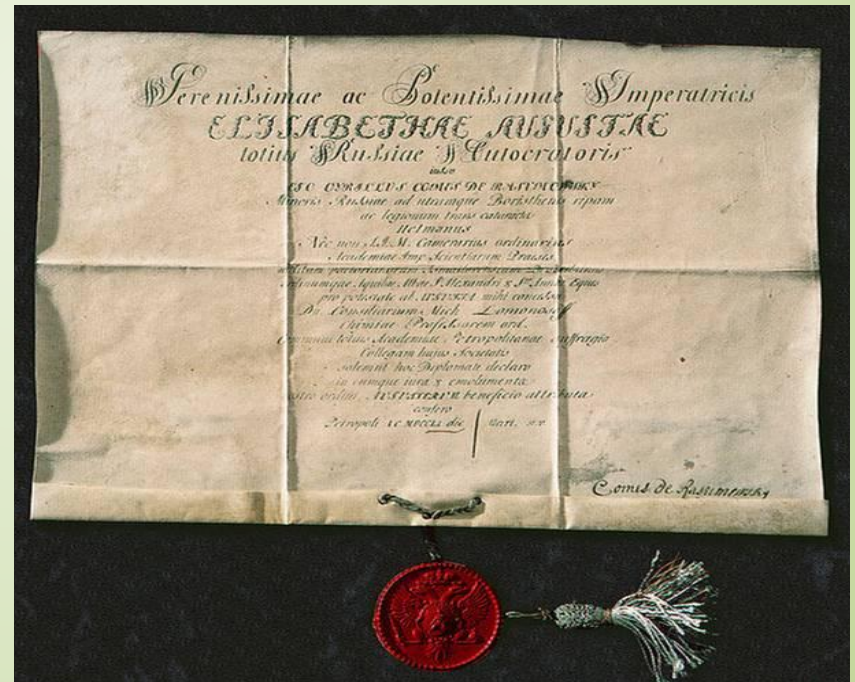 Serenissimae ac Potentissimae Imperatricis
ELISABETHAE AUGUSTAE
totius Russiae Autocratoris
iussu
EGO CYRILLUS COMES DE RASUMOWSKY
Minoris Russiae ad utramque Boristhenis ripam
ac legionum trans cataracta
Hetmanus
Nec non S.I.M. Camerarius ordinarius
Academiae Imp. Scientiarum Praeses
Aquilae Albae S. Alexandri & Stae Annae Eques
pro potestate ab AUGUSTA mihi concessa
Dn. Consiliarium Mich Lomonosoff
Chimiae Professorem ord.
communi totius Academiae Petropolitanae suffragio
Collegam hujus Societatis
solemni hoc Diplomate declaro
in eumque iura & emolumenta
ordini AUGUSTERUM beneficio attributa
confero
Petropoli die
Comes de Rasumowsky